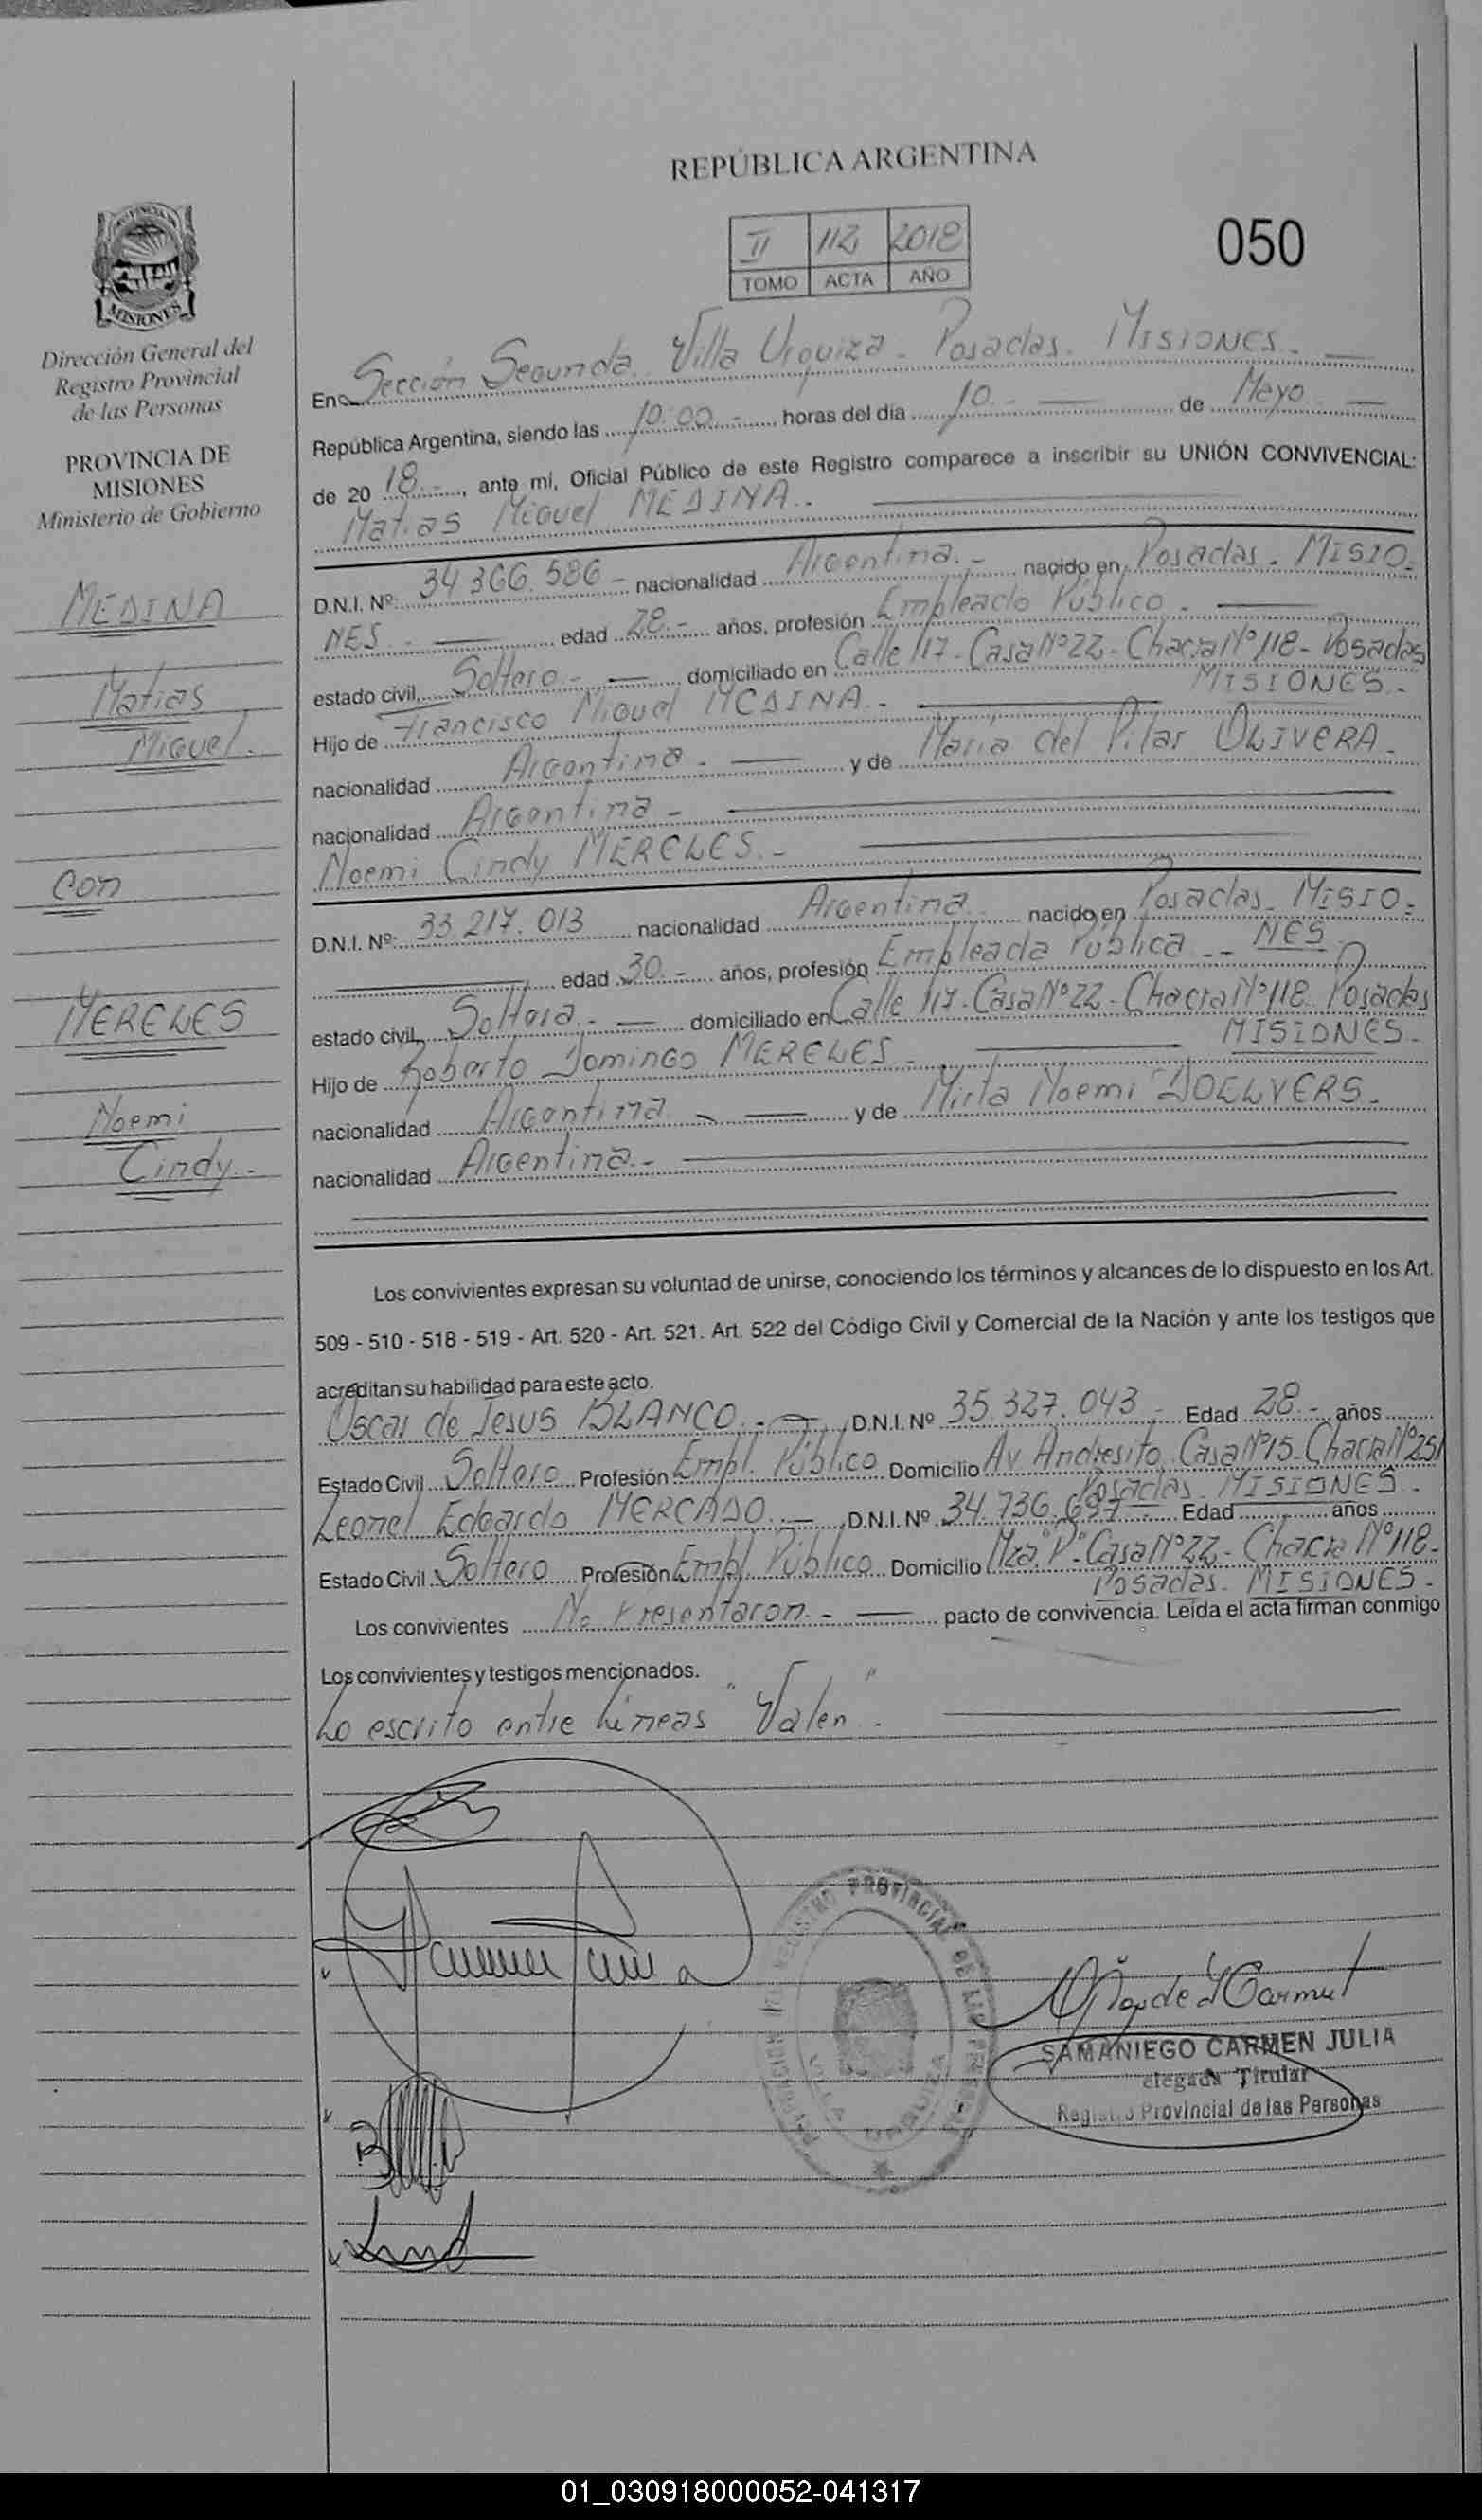 REPÚBLICA ARGENTINA
II 112 2018
TOMO ACTA AÑO
050
PROVINCIA DE
MISIONES
Dirección General del
Registro Provincial
de las Personas
PROVINCIA DE
MISIONES
Ministerio de Gobierno
MEDINA
Matias
Miguel.
con
MERELES
Noemi
Cindy.-
En Sección Segunda Villa Urquiza - Posadas. MISIONES.-
República Argentina, siendo las 10:00.- horas del día 10.- de Mayo
de 2018.-, ante mí, Oficial Público de este Registro comparece a inscribir su UNIÓN CONVIVENCIAL:
Matias Miguel MEDINA.-
D.N.I. Nº: 34 366.586 - nacionalidad Argentina.- nacido en Posadas - MISIO-
NES - edad 28.- años, profesión Empleado Público -
estado civil Soltero.- domiciliado en Calle 117 - Casa Nº 22 - Chacra Nº 118 - Posadas
MISIONES.-
Hijo de Francisco Miguel MEDINA.-
nacionalidad Argentina - y de María del Pilar OLIVERA -
nacionalidad Argentina -
Noemi Cindy MERELES.-
D.N.I. Nº: 33.217.013 nacionalidad Argentina nacido en Posadas - MISIO-
edad 30.- años, profesión Empleada Pública -- NES
estado civil Soltera.- domiciliado en Calle 117 - Casa Nº 22 - Chacra Nº 118 Posadas
MISIONES.-
Hijo de Roberto Domingo MERELES -
nacionalidad Argentina - y de Mirta Noemi DOLLVERS -
nacionalidad Argentina.-
Los convivientes expresan su voluntad de unirse, conociendo los términos y alcances de lo dispuesto en los Art.
509 - 510 - 518 - 519 - Art. 520 - Art. 521. Art. 522 del Código Civil y Comercial de la Nación y ante los testigos que
acreditan su habilidad para este acto.
Oscar de Jesus BLANCO.- D.N.I. Nº 35.327.043 - Edad 28.- años
Estado Civil Soltero Profesión Empl. Público Domicilio Av Andresito Casa Nº 15 - Chacra Nº 251
Posadas. MISIONES -
Leonel Edgardo MERCADO.- D.N.I. Nº 34.736.697 - Edad años
Estado Civil Soltero Profesión Empl Público Domicilio Mza "P" - Casa Nº 22 - Chacra Nº 118 -
Posadas. MISIONES -
Los convivientes No Presentaron - pacto de convivencia. Leída el acta firman conmigo
Los convivientes y testigos mencionados.
Lo escrito entre Líneas "Valen".-
REGISTRO PROVINCIAL DE LAS PERSONAS
VILLA URQUIZA
SAMANIEGO CARMEN JULIA
elegada Titular
Registro Provincial de las Personas
01_030918000052-041317